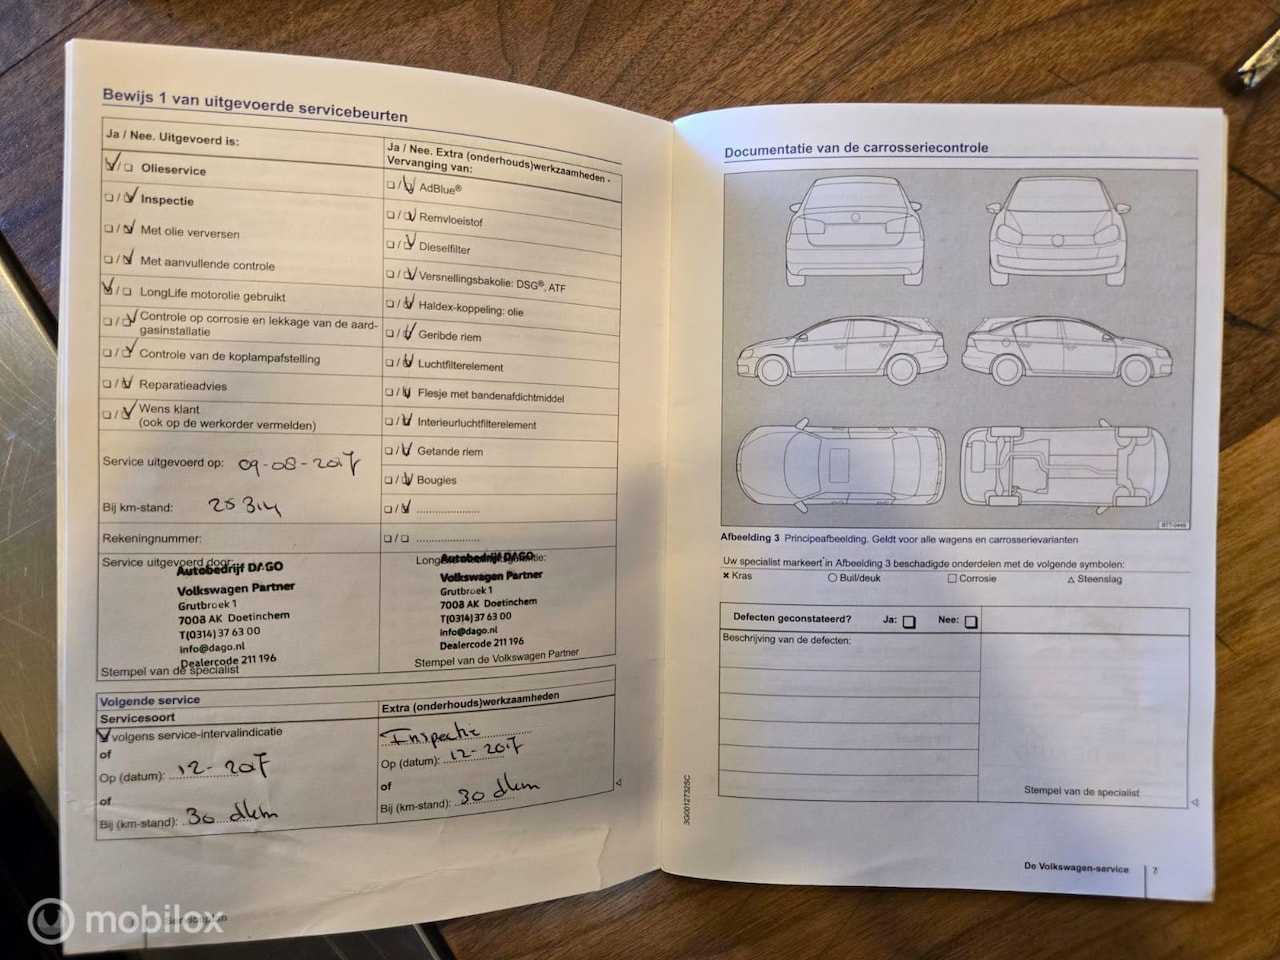 Bewijs 1 van uitgevoerde servicebeurten
Ja / Nee. Uitgevoerd is:
Olieservice
Inspectie
Met olie verversen
Met aanvullende controle
LongLife motorolie gebruikt
Controle op corrosie en lekkage van de aard-
gasinstallatie
Controle van de koplampafstelling
Reparatieadvies
Wens klant
(ook op de werkorder vermelden)
Service uitgevoerd op: 09-08-2017
Bij km-stand:
Rekeningnummer:
Service uitgevoerd door:
Autobedrijf DAGO
Volkswagen Partner
Grutbroek 1
7008 AK Doetinchem
T(0314) 37 63 00
info@dago.nl
Dealercode 211 196
Stempel van de specialist
Ja / Nee. Extra (onderhouds)werkzaamheden -
Vervanging van:
AdBlue®
Remvloeistof
Dieselfilter
Versnellingsbakolie: DSG®, ATF
Haldex-koppeling: olie
Geribde riem
Luchtfilterelement
Flesje met bandenafdichtmiddel
Interieurluchtfilterelement
Getande riem
Bougies
Autobedrijf DAGO
Volkswagen Partner
Grutbroek 1
7008 AK Doetinchem
T(0314) 37 63 00
info@dago.nl
Dealercode 211 196
Stempel van de Volkswagen Partner
Volgende service
Servicesoort
volgens service-intervalindicatie
of
Op (datum): 12-2017
of
Bij (km-stand): 30 dkm
Extra (onderhouds)werkzaamheden
Inspectie
Op (datum): 12-2017
of
Bij (km-stand): 30 dkm
Serviceplan
Documentatie van de carrosseriecontrole
BTT-0449
Afbeelding 3 Principeafbeelding. Geldt voor alle wagens en carrosserievarianten
Uw specialist markeert in Afbeelding 3 beschadigde onderdelen met de volgende symbolen:
× Kras ○ Buil/deuk □ Corrosie △ Steenslag
Defecten geconstateerd? Ja: Nee:
Beschrijving van de defecten:
Stempel van de specialist
3G0012732SC
De Volkswagen-service 7
mobilox